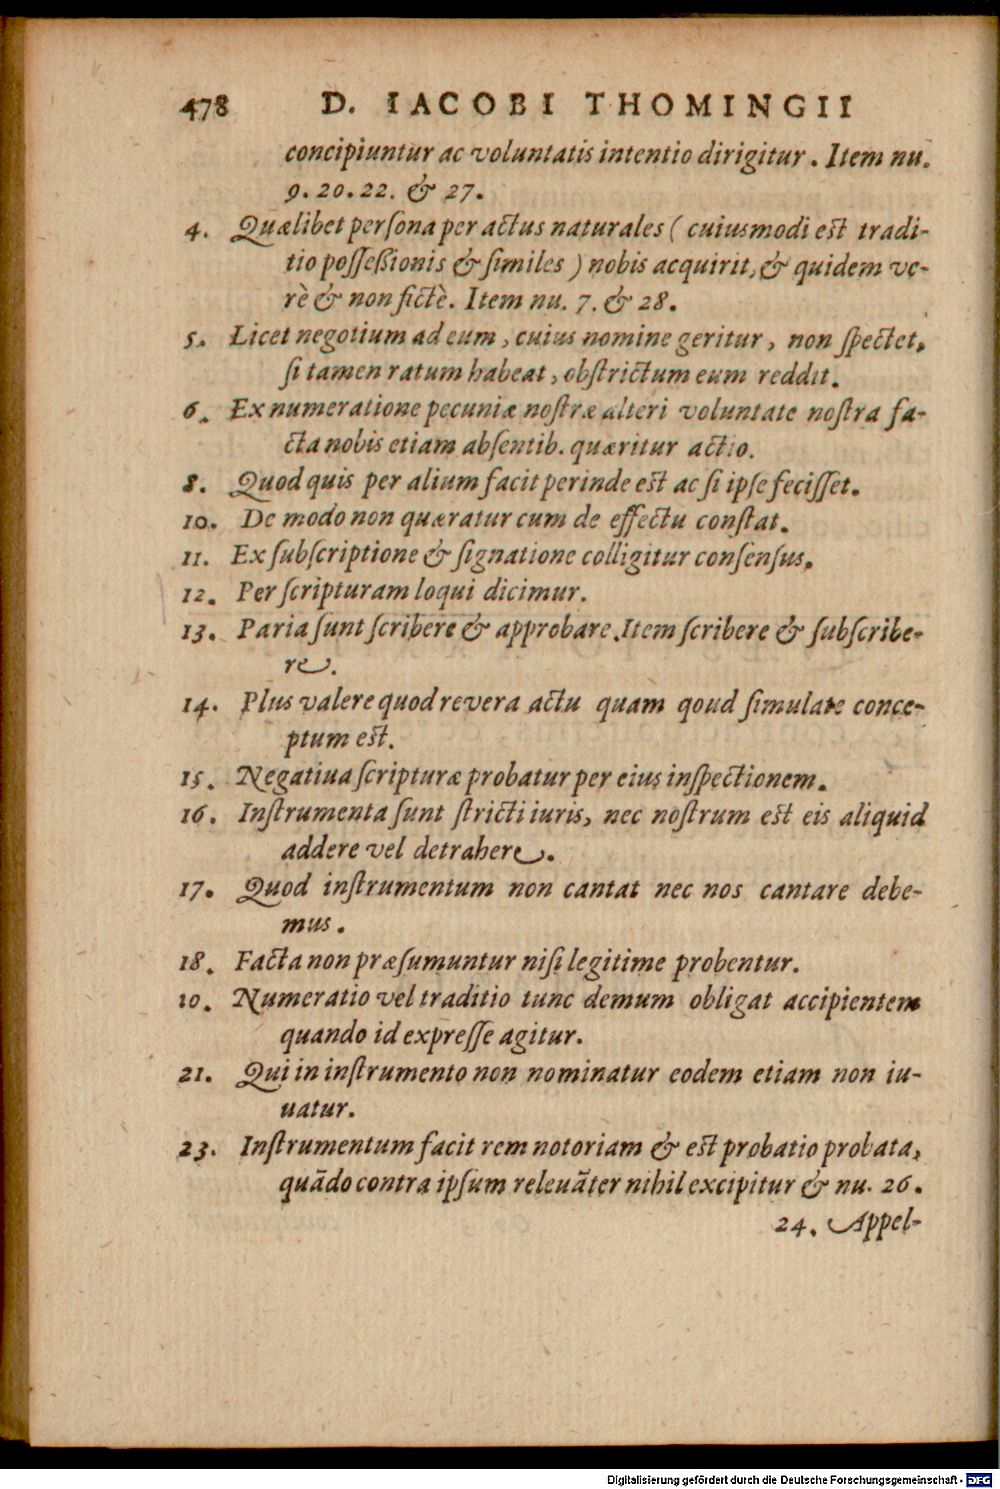 478 D. IACOBI THOMINGII
concipiuntur ac voluntatis intentio dirigitur. Item nu.
9. 20. 22. & 27.
4. Quælibet perſona per actus naturales ( cuiusmodi est tradi-
tio poſſeßionis & ſimiles ) nobis acquirit, & quidem ve-
rè & non fictè. Item nu. 7. & 28.
5. Licet negotium ad eum, cuius nomine geritur, non ſpectet,
ſi tamen ratum habeat, obſtrictum eum reddit.
6. Ex numeratione pecuniæ noſtræ alteri voluntate noſtra fa-
cta nobis etiam abſentib. quæritur actio.
8. Quod quis per alium facit perinde est ac ſi ipſe feciſſet.
10. De modo non quæratur cum de effectu conſtat.
11. Ex ſubſcriptione & ſignatione colligitur conſenſus.
12. Per ſcripturam loqui dicimur.
13. Paria ſunt ſcribere & approbare. Item ſcribere & ſubſcribe-
re.
14. Plus valere quod revera actu quam qoud ſimulate conce-
ptum est.
15. Negatiua ſcripturæ probatur per eius inſpectionem.
16. Inſtrumenta ſunt ſtricti iuris, nec noſtrum est eis aliquid
addere vel detrahere.
17. Quod inſtrumentum non cantat nec nos cantare debe-
mus.
18. Facta non præſumuntur niſi legitime probentur.
10. Numeratio vel traditio tunc demum obligat accipientem
quando id expreſſe agitur.
21. Qui in inſtrumento non nominatur eodem etiam non iu-
uatur.
23. Inſtrumentum facit rem notoriam & est probatio probata,
quãdo contra ipſum releuãter nihil excipitur & nu. 26.
24. Appel-
Digitalisierung gefördert durch die Deutsche Forschungsgemeinschaft - DFG